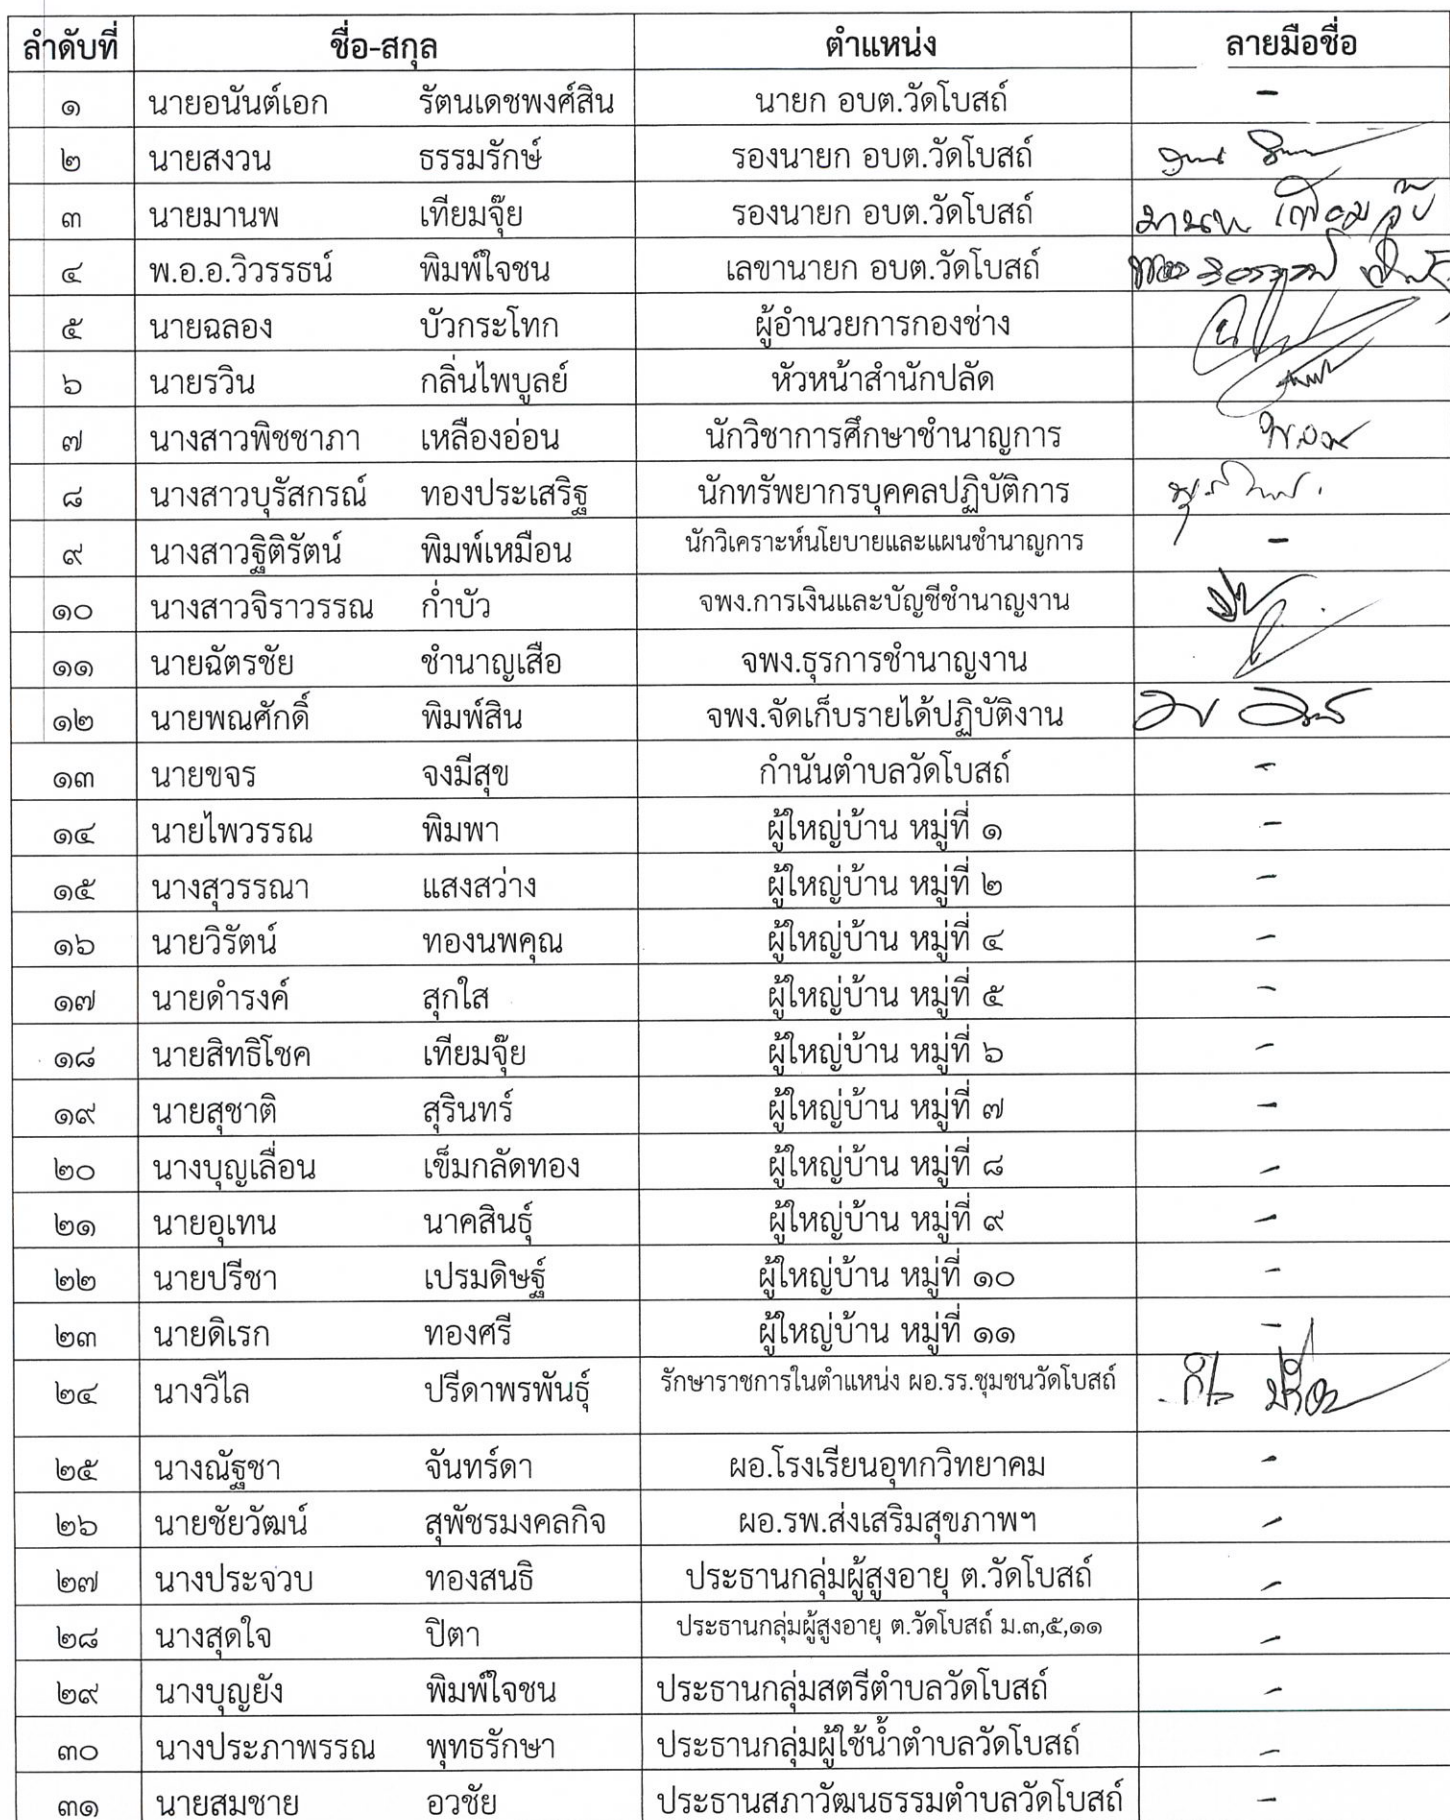 ลำดับที่ ชื่อ-สกุล ตำแหน่ง ลายมือชื่อ
๑ นายอนันต์เอก รัตนเดชพงศ์สิน นายก อบต.วัดโบสถ์ -
๒ นายสงวน ธรรมรักษ์ รองนายก อบต.วัดโบสถ์
๓ นายมานพ เทียมจุ๊ย รองนายก อบต.วัดโบสถ์ มานพ เทียมจุ๊ย
๔ พ.อ.อ.วิวรรธน์ พิมพ์ใจชน เลขานายก อบต.วัดโบสถ์
๕ นายฉลอง บัวกระโทก ผู้อำนวยการกองช่าง
๖ นายรวิน กลิ่นไพบูลย์ หัวหน้าสำนักปลัด
๗ นางสาวพิชชาภา เหลืองอ่อน นักวิชาการศึกษาชำนาญการ
๘ นางสาวบุรัสกรณ์ ทองประเสริฐ นักทรัพยากรบุคคลปฏิบัติการ
๙ นางสาวฐิติรัตน์ พิมพ์เหมือน นักวิเคราะห์นโยบายและแผนชำนาญการ -
๑๐ นางสาวจิราวรรณ ก่ำบัว จพง.การเงินและบัญชีชำนาญงาน
๑๑ นายฉัตรชัย ชำนาญเสือ จพง.ธุรการชำนาญงาน
๑๒ นายพณศักดิ์ พิมพ์สิน จพง.จัดเก็บรายได้ปฏิบัติงาน
๑๓ นายขจร จงมีสุข กำนันตำบลวัดโบสถ์ -
๑๔ นายไพวรรณ พิมพา ผู้ใหญ่บ้าน หมู่ที่ ๑ -
๑๕ นางสุวรรณา แสงสว่าง ผู้ใหญ่บ้าน หมู่ที่ ๒ -
๑๖ นายวิรัตน์ ทองนพคุณ ผู้ใหญ่บ้าน หมู่ที่ ๔ -
๑๗ นายดำรงค์ สุกใส ผู้ใหญ่บ้าน หมู่ที่ ๕ -
๑๘ นายสิทธิโชค เทียมจุ๊ย ผู้ใหญ่บ้าน หมู่ที่ ๖ -
๑๙ นายสุชาติ สุรินทร์ ผู้ใหญ่บ้าน หมู่ที่ ๗ -
๒๐ นางบุญเลื่อน เข็มกลัดทอง ผู้ใหญ่บ้าน หมู่ที่ ๘ -
๒๑ นายอุเทน นาคสินธุ์ ผู้ใหญ่บ้าน หมู่ที่ ๙ -
๒๒ นายปรีชา เปรมดิษฐ์ ผู้ใหญ่บ้าน หมู่ที่ ๑๐ -
๒๓ นายดิเรก ทองศรี ผู้ใหญ่บ้าน หมู่ที่ ๑๑ -
๒๔ นางวิไล ปรีดาพรพันธุ์ รักษาราชการในตำแหน่ง ผอ.รร.ชุมชนวัดโบสถ์
๒๕ นางณัฐชา จันทร์ดา ผอ.โรงเรียนอุทกวิทยาคม -
๒๖ นายชัยวัฒน์ สุพัชรมงคลกิจ ผอ.รพ.ส่งเสริมสุขภาพฯ -
๒๗ นางประจวบ ทองสนธิ ประธานกลุ่มผู้สูงอายุ ต.วัดโบสถ์ -
๒๘ นางสุดใจ ปิตา ประธานกลุ่มผู้สูงอายุ ต.วัดโบสถ์ ม.๓,๕,๑๑ -
๒๙ นางบุญยัง พิมพ์ใจชน ประธานกลุ่มสตรีตำบลวัดโบสถ์ -
๓๐ นางประภาพรรณ พุทธรักษา ประธานกลุ่มผู้ใช้น้ำตำบลวัดโบสถ์ -
๓๑ นายสมชาย อวชัย ประธานสภาวัฒนธรรมตำบลวัดโบสถ์ -